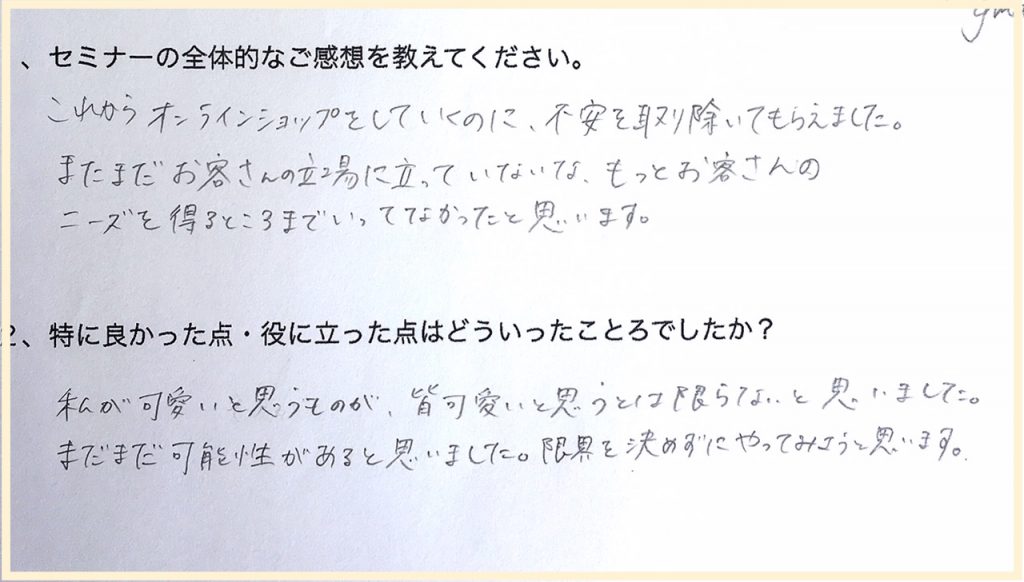 、セミナーの全体的なご感想を教えてください。
これからオンラインショップをしていくのに、不安を取り除いてもらえました。
まだまだお客さんの立場に立っていないな、もっとお客さんの
ニーズを得るところまでいっててなかったと思います。
2、特に良かった点・役に立った点はどういったことろでしたか？
私が可愛いと思うものが、皆可愛いと思うとは限らないと思いました。
まだまだ可能性があると思いました。限界を決めずにやってみようと思います。